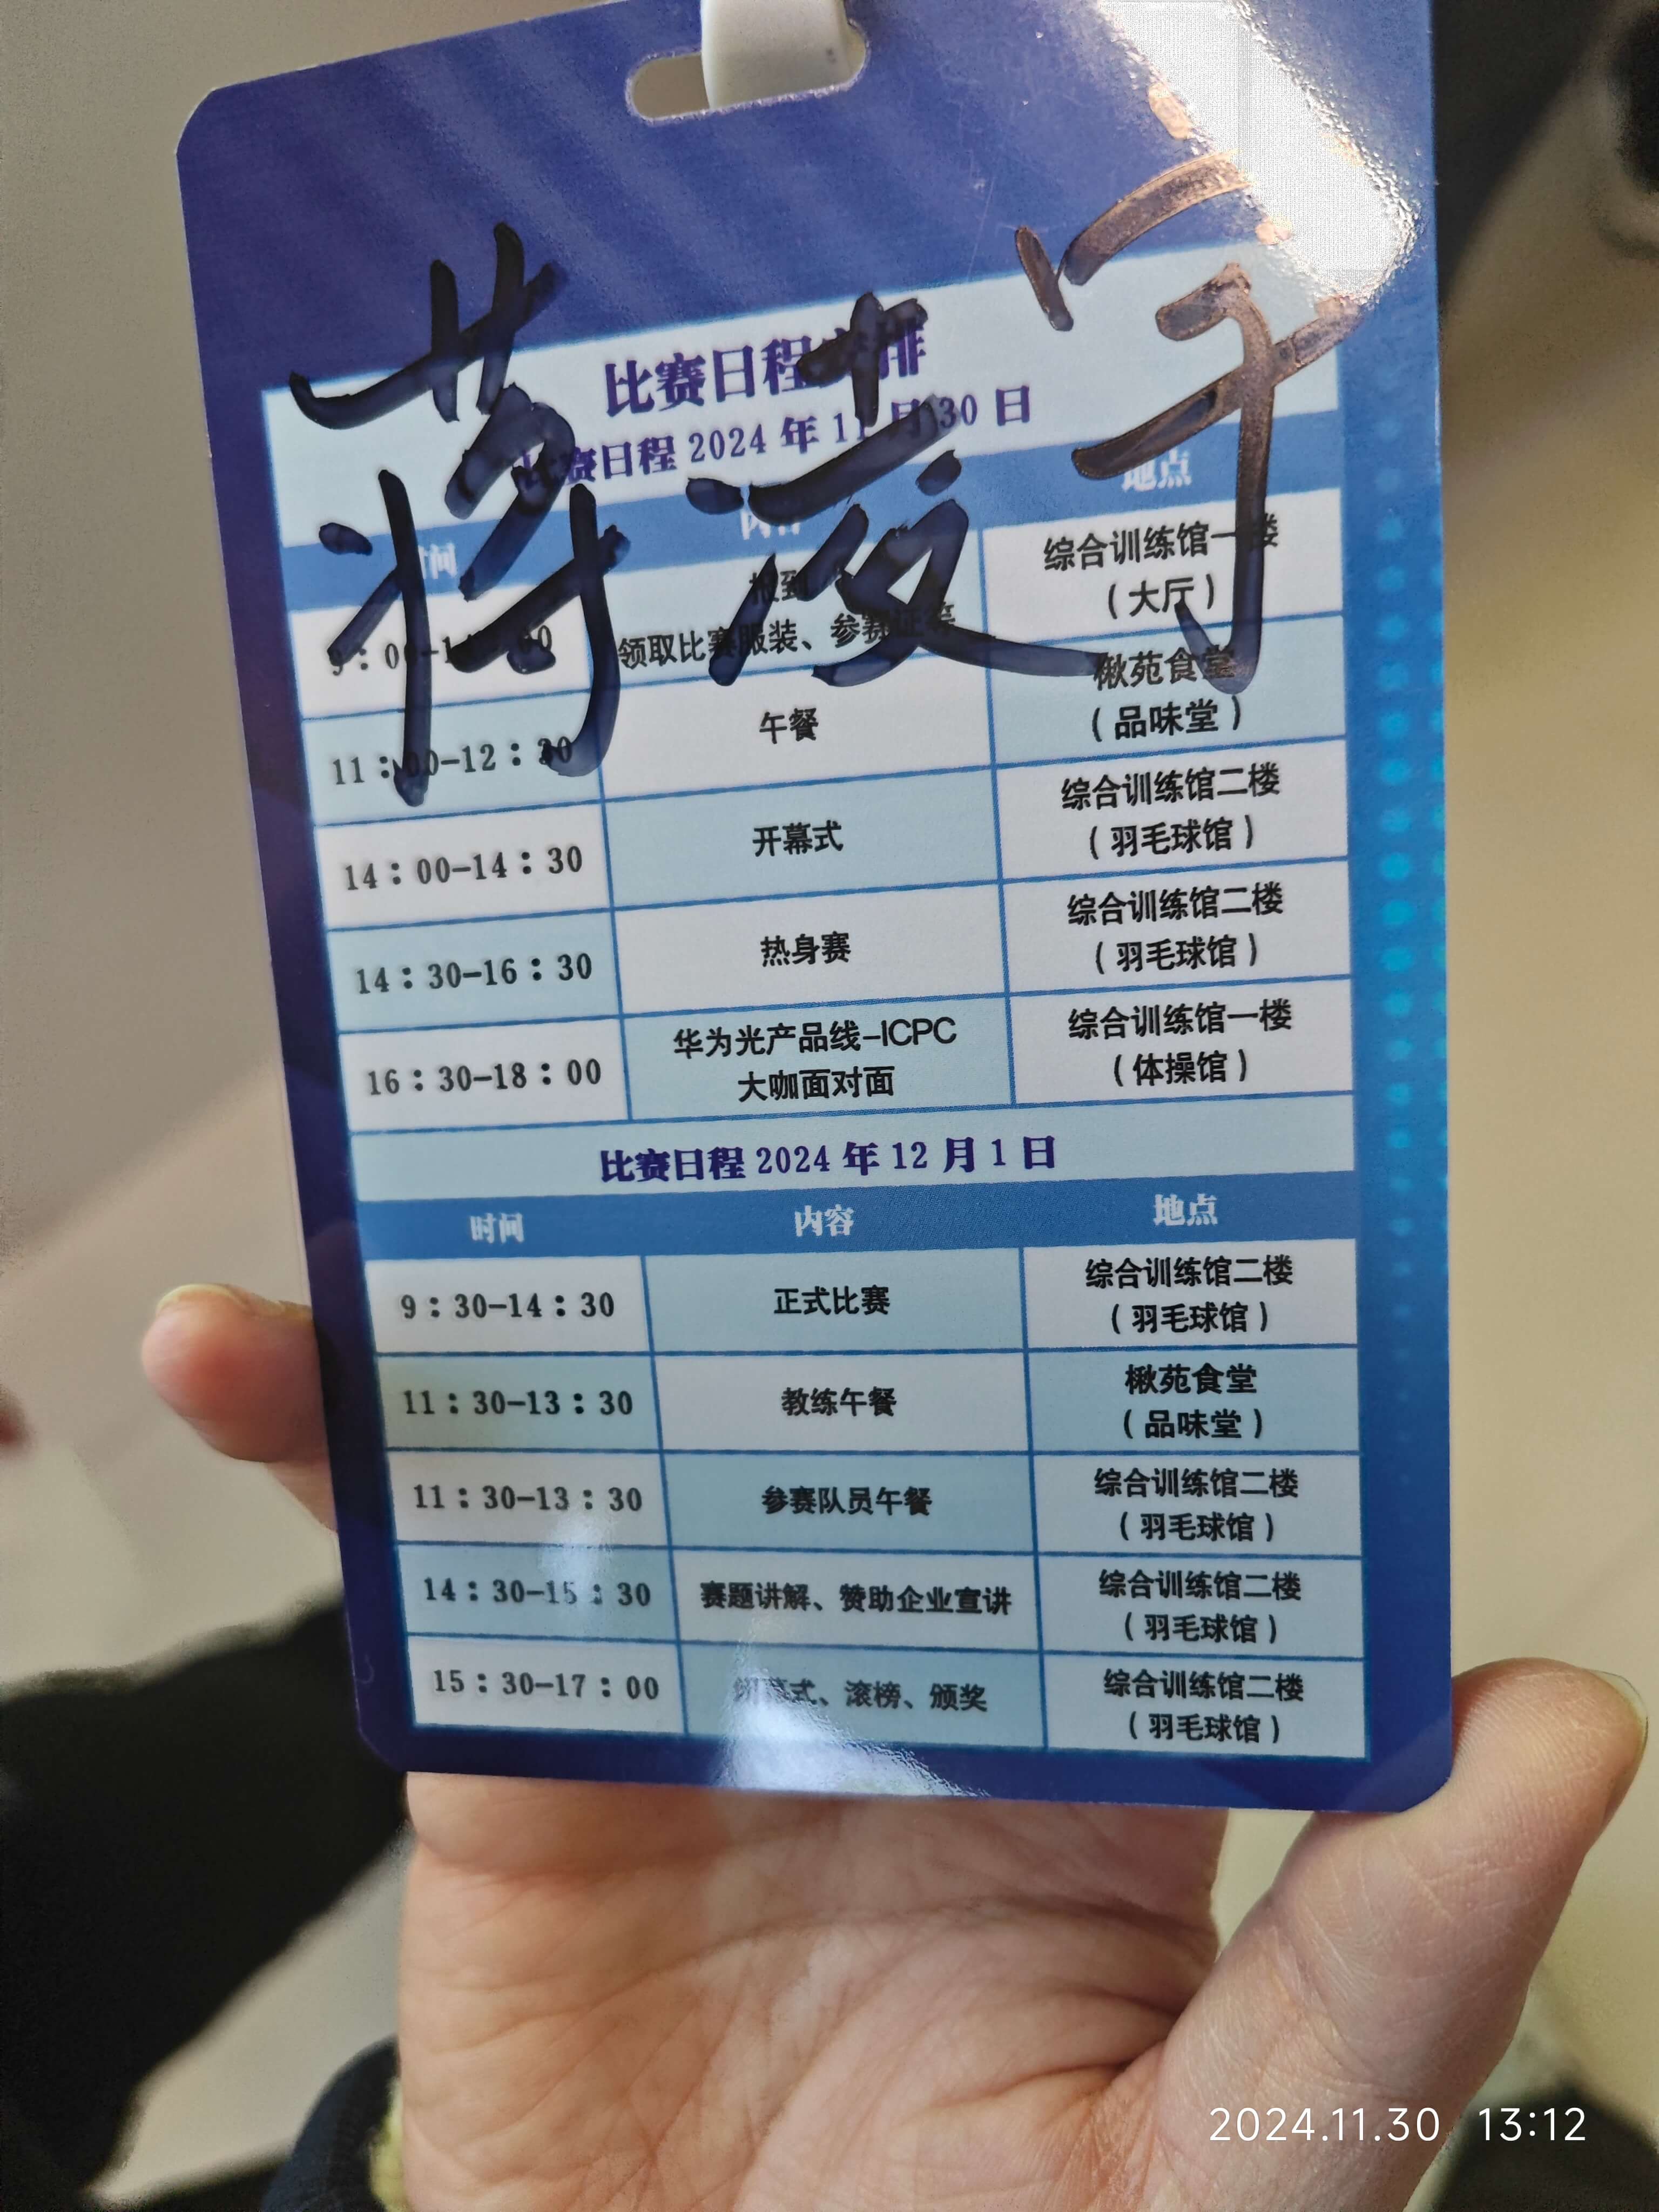 蒋凌宇
比赛日程安排
比赛日程 2024 年 11 月 30 日
时间 内容 地点
报到 综合训练馆一楼
领取比赛服装、参赛证等 （大厅）
11：00-12：30 午餐 楸苑食堂
（品味堂）
14：00-14：30 开幕式 综合训练馆二楼
（羽毛球馆）
14：30-16：30 热身赛 综合训练馆二楼
（羽毛球馆）
16：30-18：00 华为光产品线-ICPC 综合训练馆一楼
大咖面对面 （体操馆）
比赛日程 2024 年 12 月 1 日
时间 内容 地点
9：30-14：30 正式比赛 综合训练馆二楼
（羽毛球馆）
11：30-13：30 教练午餐 楸苑食堂
（品味堂）
11：30-13：30 参赛队员午餐 综合训练馆二楼
（羽毛球馆）
14：30-15：30 赛题讲解、赞助企业宣讲 综合训练馆二楼
（羽毛球馆）
15：30-17：00 闭幕式、滚榜、颁奖 综合训练馆二楼
（羽毛球馆）
2024.11.30 13:12